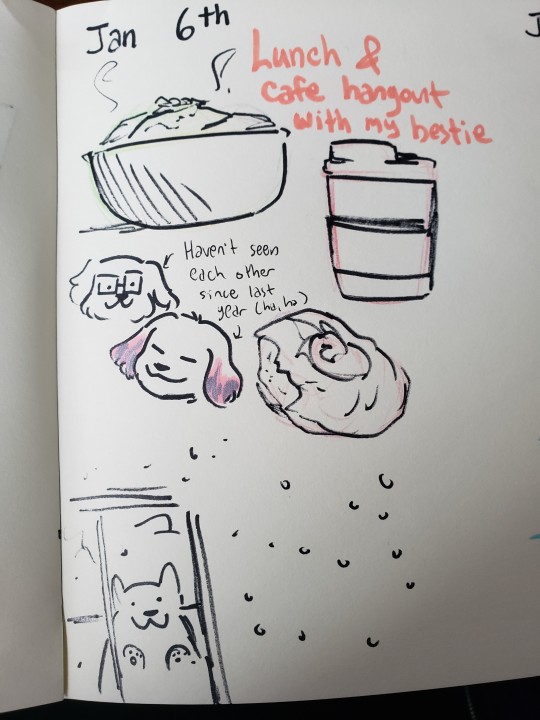 Jan 6th
Lunch &
cafe hangout
with my bestie
Haven't seen
each other
since last
year (ha,ha)
J